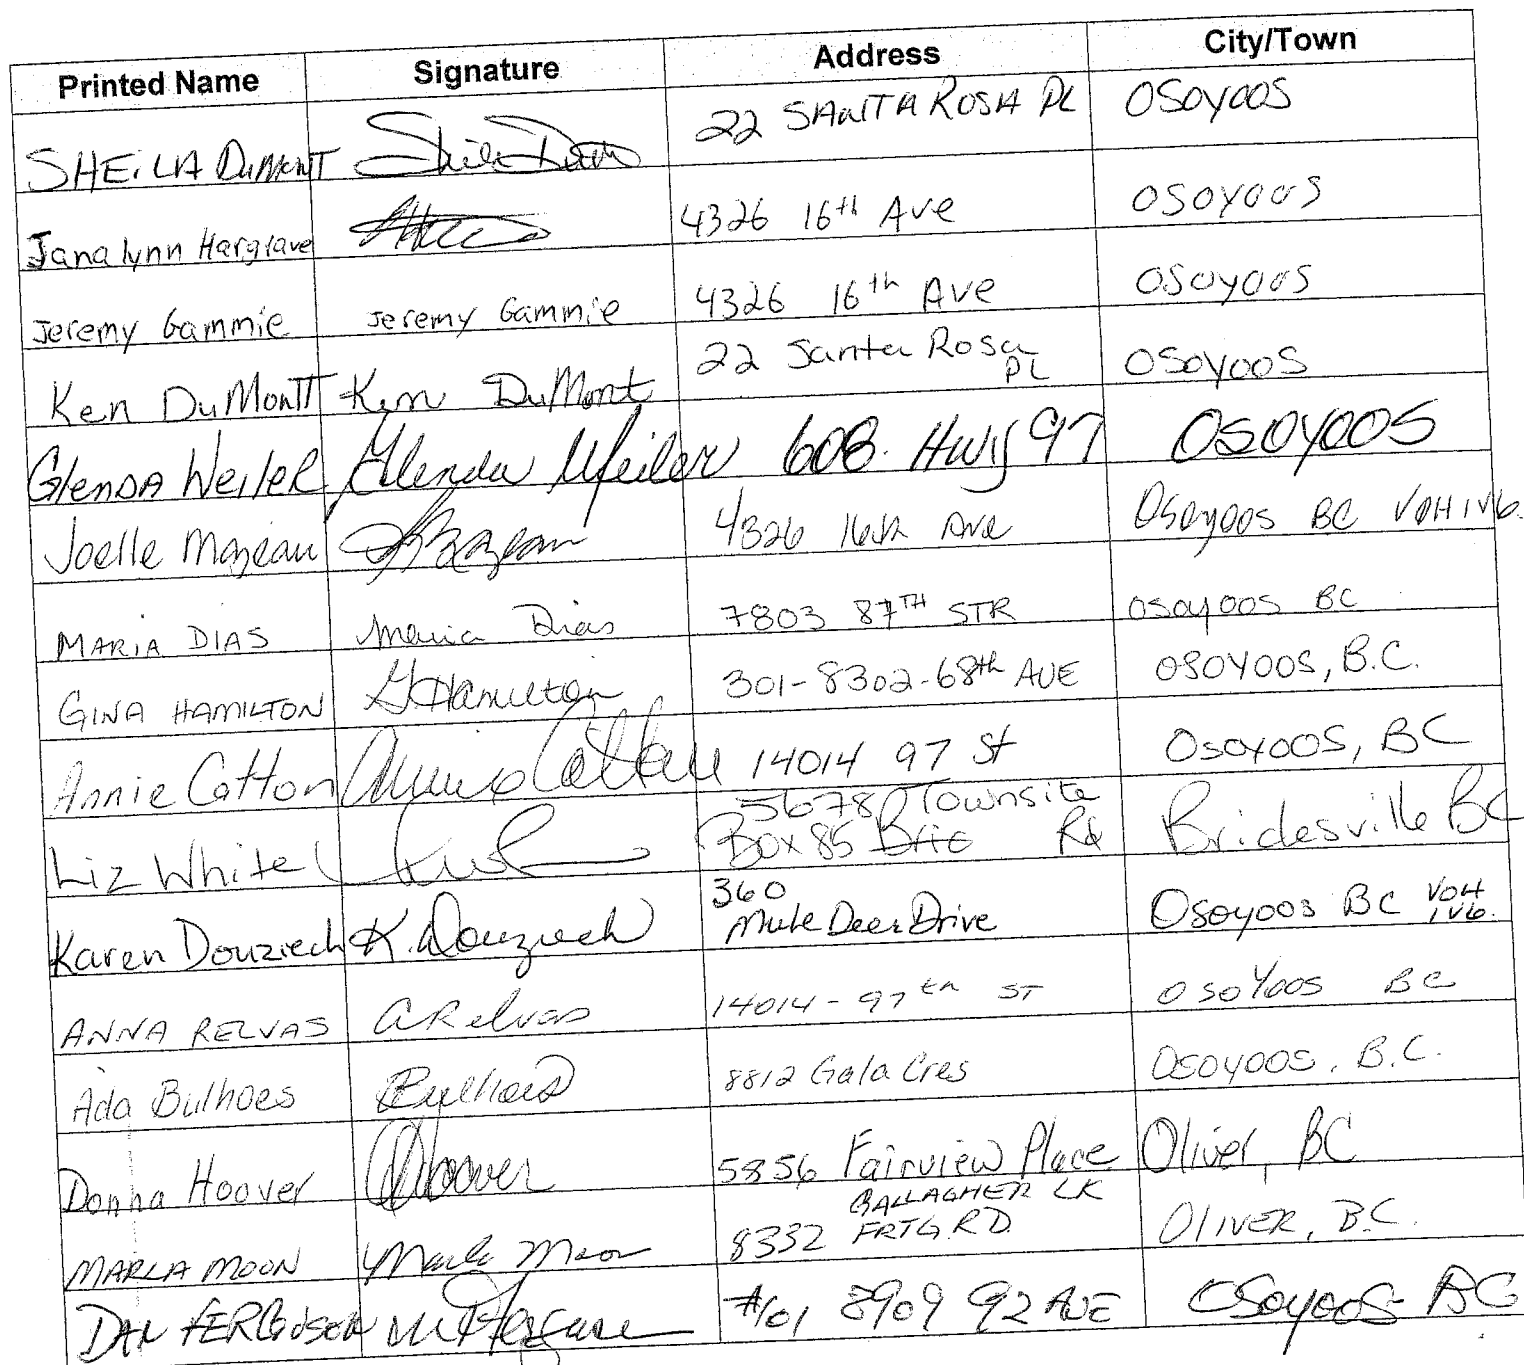 Printed Name Signature Address City/Town
SHEILA DUMONT 22 SANTA ROSA PL OSOYOOS
Janalynn Hargrave 4326 16th Ave OSOYOOS
Jeremy Gammie Jeremy Gammie 4326 16th Ave OSOYOOS
Ken DuMont Ken DuMont 22 Santa Rosa PL OSOYOOS
Glenda Weiler Glenda Weiler 608 Hwy 97 OSOYOOS
Joelle Mazeau JMazeau 4326 16th Ave Osoyoos BC V0H 1V6.
MARIA DIAS Maria Dias 7803 87TH STR OSOYOOS BC
GINA HAMILTON G Hamilton 301-8302-68th AVE OSOYOOS, B.C.
Annie Cotton Annie Cotton 14014 97 St Osoyoos, BC
Liz White 5678 Townsite Rd Box 85 Bridesville BC
Karen Douziech K. Douziech 360 Mule Deer Drive Osoyoos BC V0H 1V6.
ANNA RELVAS A Relvas 14014-97th ST OSOYOOS BC
Ada Bulhoes Bulhoes 8812 Gala Cres OSOYOOS, B.C.
Donna Hoover DHoover 5856 Fairview Place Oliver, BC
MARLA MOON Marla Moon 8332 GALLAGHER LK FRTG. RD. OLIVER, B.C.
DAN FERGUSON #101 8909 92 AVE OSOYOOS BC